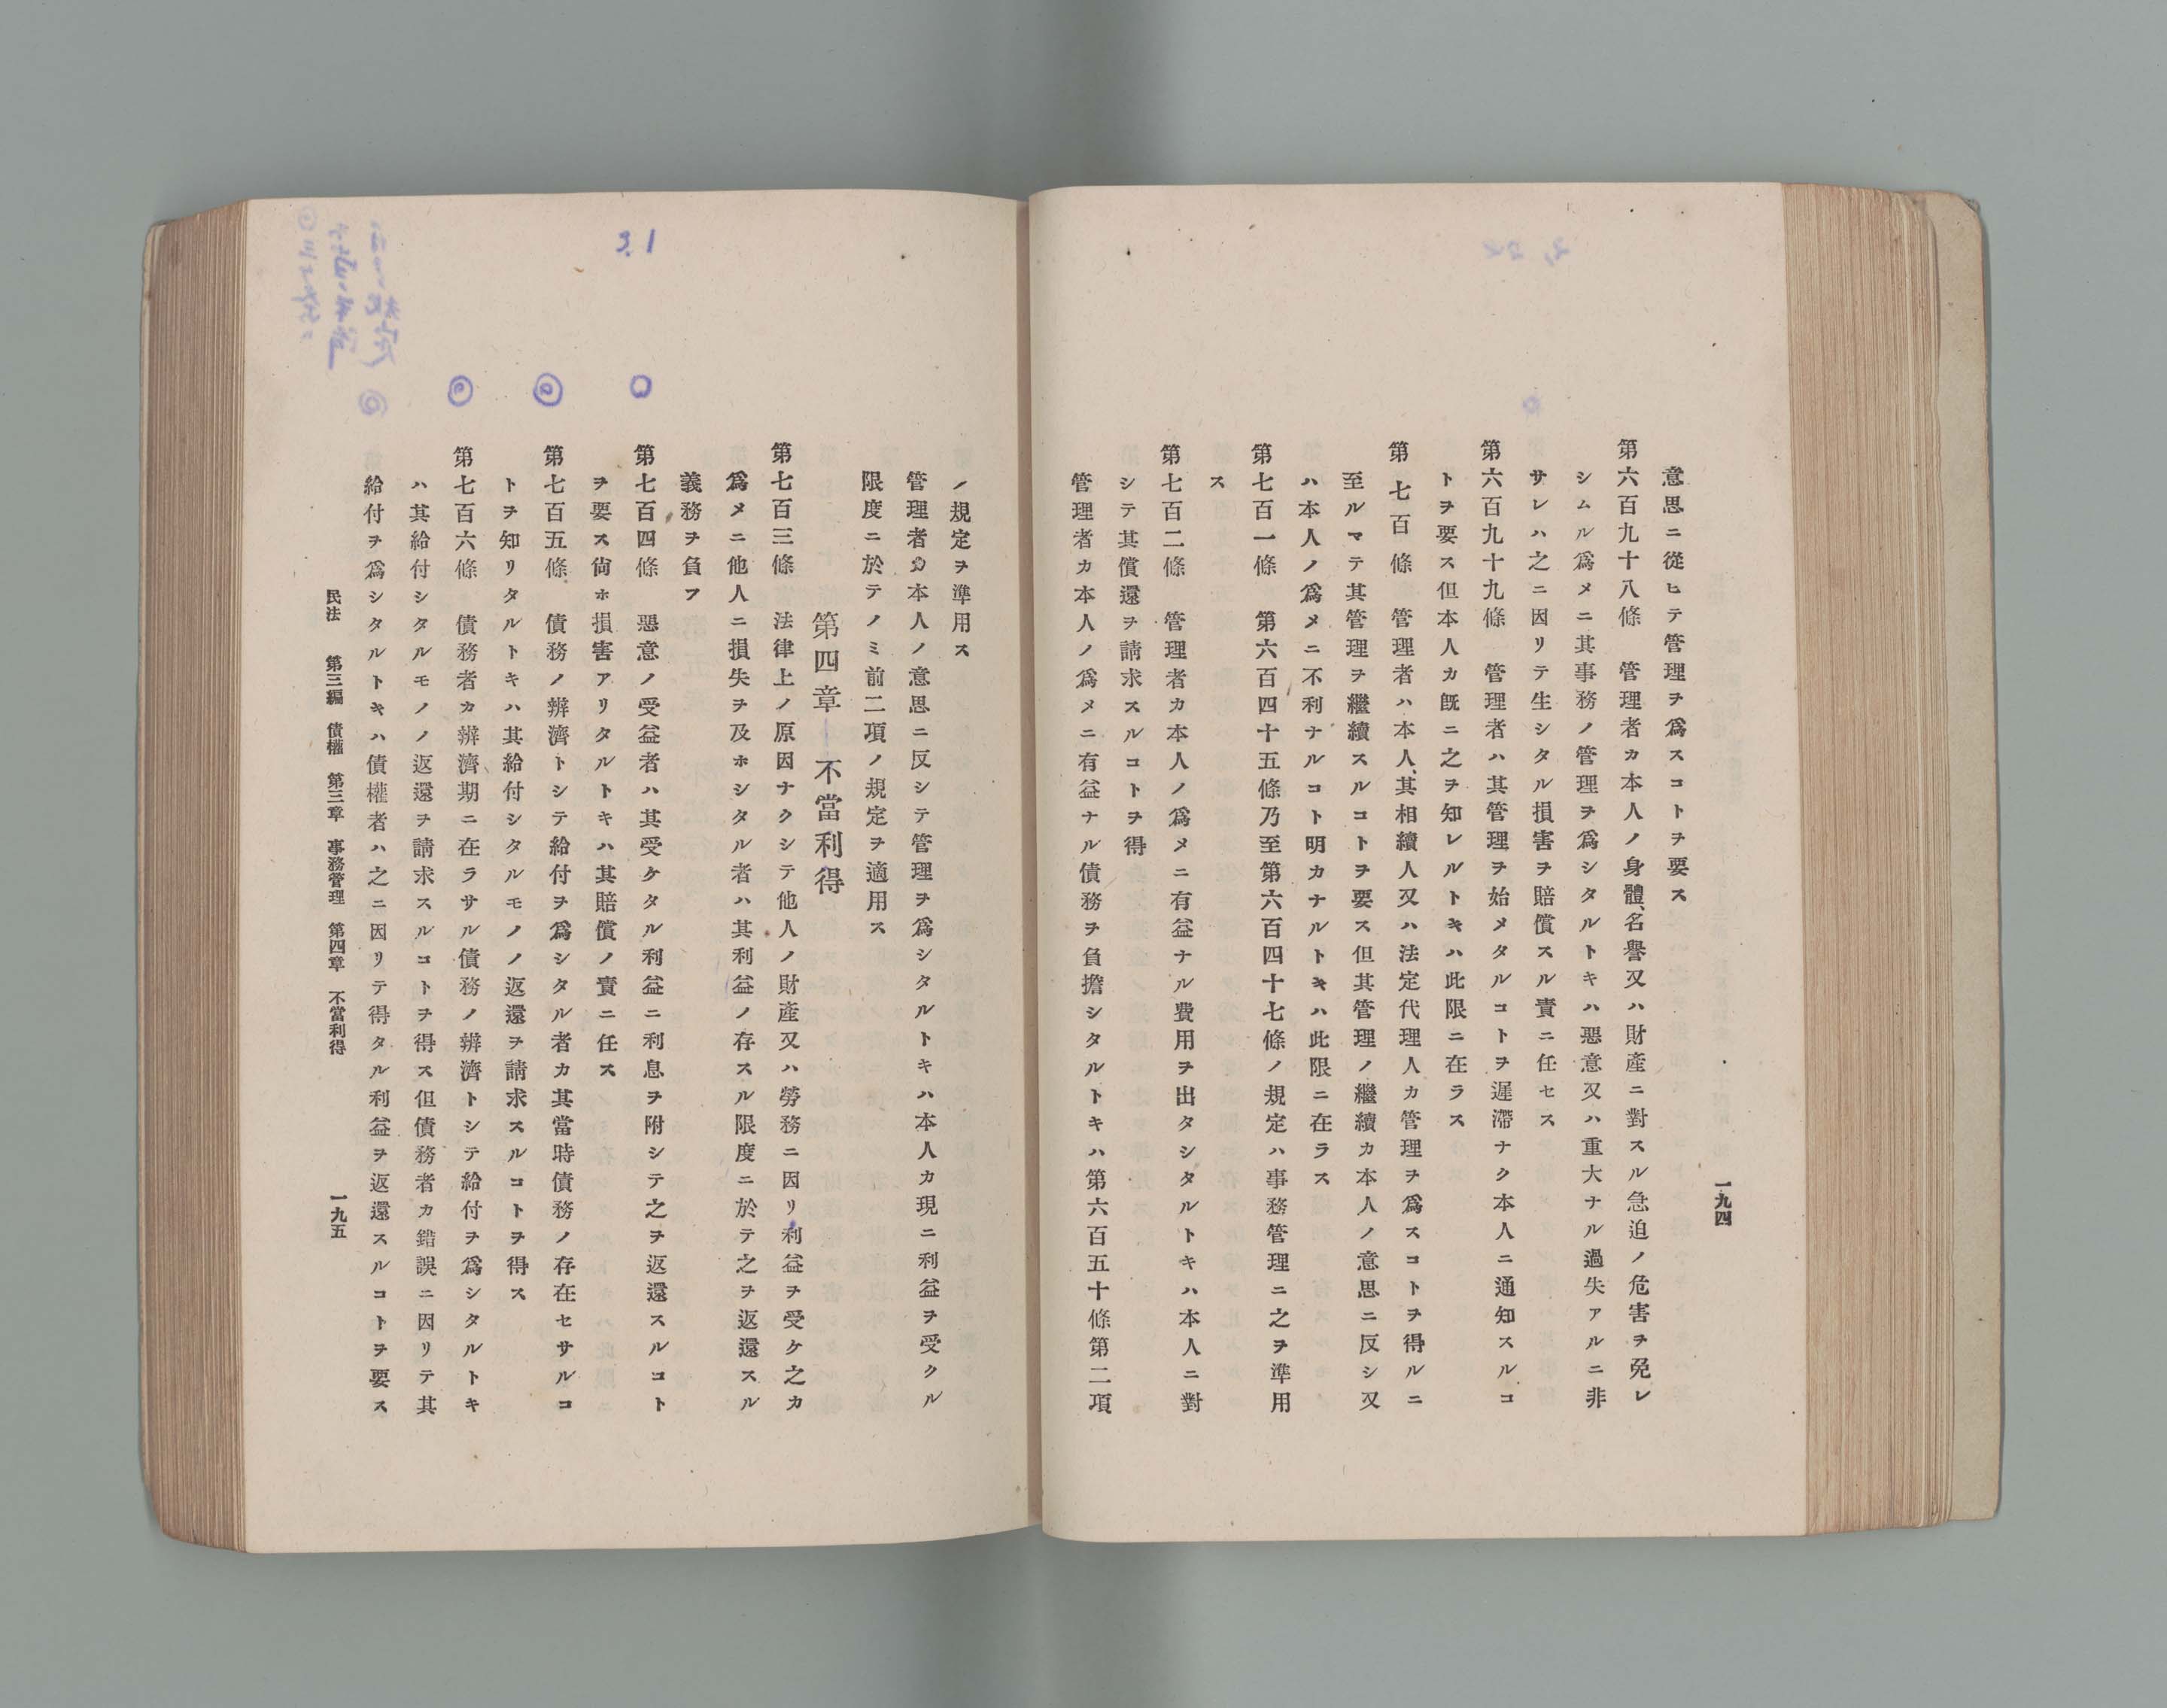 一九四
意思ニ從ヒテ管理ヲ爲スコトヲ要ス
第六百九十八條　管理者カ本人ノ身體、名譽又ハ財產ニ對スル急迫ノ危害ヲ免レ
シムル爲メニ其事務ノ管理ヲ爲シタルトキハ惡意又ハ重大ナル過失アルニ非
サレハ之ニ因リテ生シタル損害ヲ賠償スル責ニ任セス
第六百九十九條　管理者ハ其管理ヲ始メタルコトヲ遲滯ナク本人ニ通知スルコ
トヲ要ス但本人カ既ニ之ヲ知レルトキハ此限ニ在ラス
第七百條　管理者ハ本人、其相續人又ハ法定代理人カ管理ヲ爲スコトヲ得ルニ
至ルマテ其管理ヲ繼續スルコトヲ要ス但其管理ノ繼續カ本人ノ意思ニ反シ又
ハ本人ノ爲メニ不利ナルコト明カナルトキハ此限ニ在ラス
第七百一條　第六百四十五條乃至第六百四十七條ノ規定ハ事務管理ニ之ヲ準用
ス
第七百二條　管理者カ本人ノ爲メニ有益ナル費用ヲ出タシタルトキハ本人ニ對
シテ其償還ヲ請求スルコトヲ得
管理者カ本人ノ爲メニ有益ナル債務ヲ負擔シタルトキハ第六百五十條第二項
ノ規定ヲ準用ス
管理者カ本人ノ意思ニ反シテ管理ヲ爲シタルトキハ本人カ現ニ利益ヲ受クル
限度ニ於テノミ前二項ノ規定ヲ適用ス
第四章　不當利得
第七百三條　法律上ノ原因ナクシテ他人ノ財產又ハ勞務ニ因リ利益ヲ受ケ之カ
爲メニ他人ニ損失ヲ及ホシタル者ハ其利益ノ存スル限度ニ於テ之ヲ返還スル
義務ヲ負フ
3.1
第七百四條　惡意ノ受益者ハ其受ケタル利益ニ利息ヲ附シテ之ヲ返還スルコト
ヲ要ス尙ホ損害アリタルトキハ其賠償ノ責ニ任ス
第七百五條　債務ノ辨濟トシテ給付ヲ爲シタル者カ其當時債務ノ存在セサルコ
トヲ知リタルトキハ其給付シタルモノノ返還ヲ請求スルコトヲ得ス
第七百六條　債務者カ辨濟期ニ在ラサル債務ノ辨濟トシテ給付ヲ爲シタルトキ
ハ其給付シタルモノノ返還ヲ請求スルコトヲ得ス但債務者カ錯誤ニ因リテ其
給付ヲ爲シタルトキハ債權者ハ之ニ因リテ得タル利益ヲ返還スルコトヲ要ス
民法　第三編　債權　第三章　事務管理　第四章　不當利得
一九五